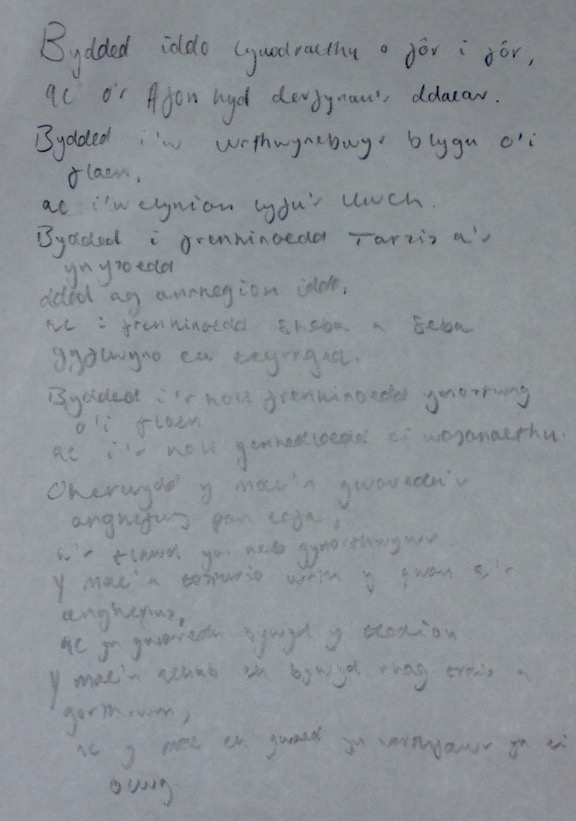 Bydded iddo lywodraethu o fôr i fôr,
ac o'r Afon hyd derfynau'r ddaear.
Bydded i'w wrthwynebwyr blygu o'i
flaen,
ac i'w elynion lyfu'r llwch.
Bydded i frenhinoedd Tarsis a'r
ynysoedd
ddod ag anrhegion iddo,
ac i frenhinoedd Sheba a Seba
gyflwyno eu teyrnged.
Bydded i'r holl frenhinoedd ymostwng
o'i flaen
ac i'r holl genhedloedd ei wasanaethu.
Oherwydd y mae'n gwaredu'r
anghenus pan lefa,
a'r tlawd yn heb gynorthwywr
Y mae'n tosturio wrth y gwan a'r
anghenus,
ac yn gwaredu bywyd y tlodion
Y mae'n achub eu bywyd rhag trais a
gorthrwm,
ac y mae eu gwaed yn werthfawr yn ei
olwg